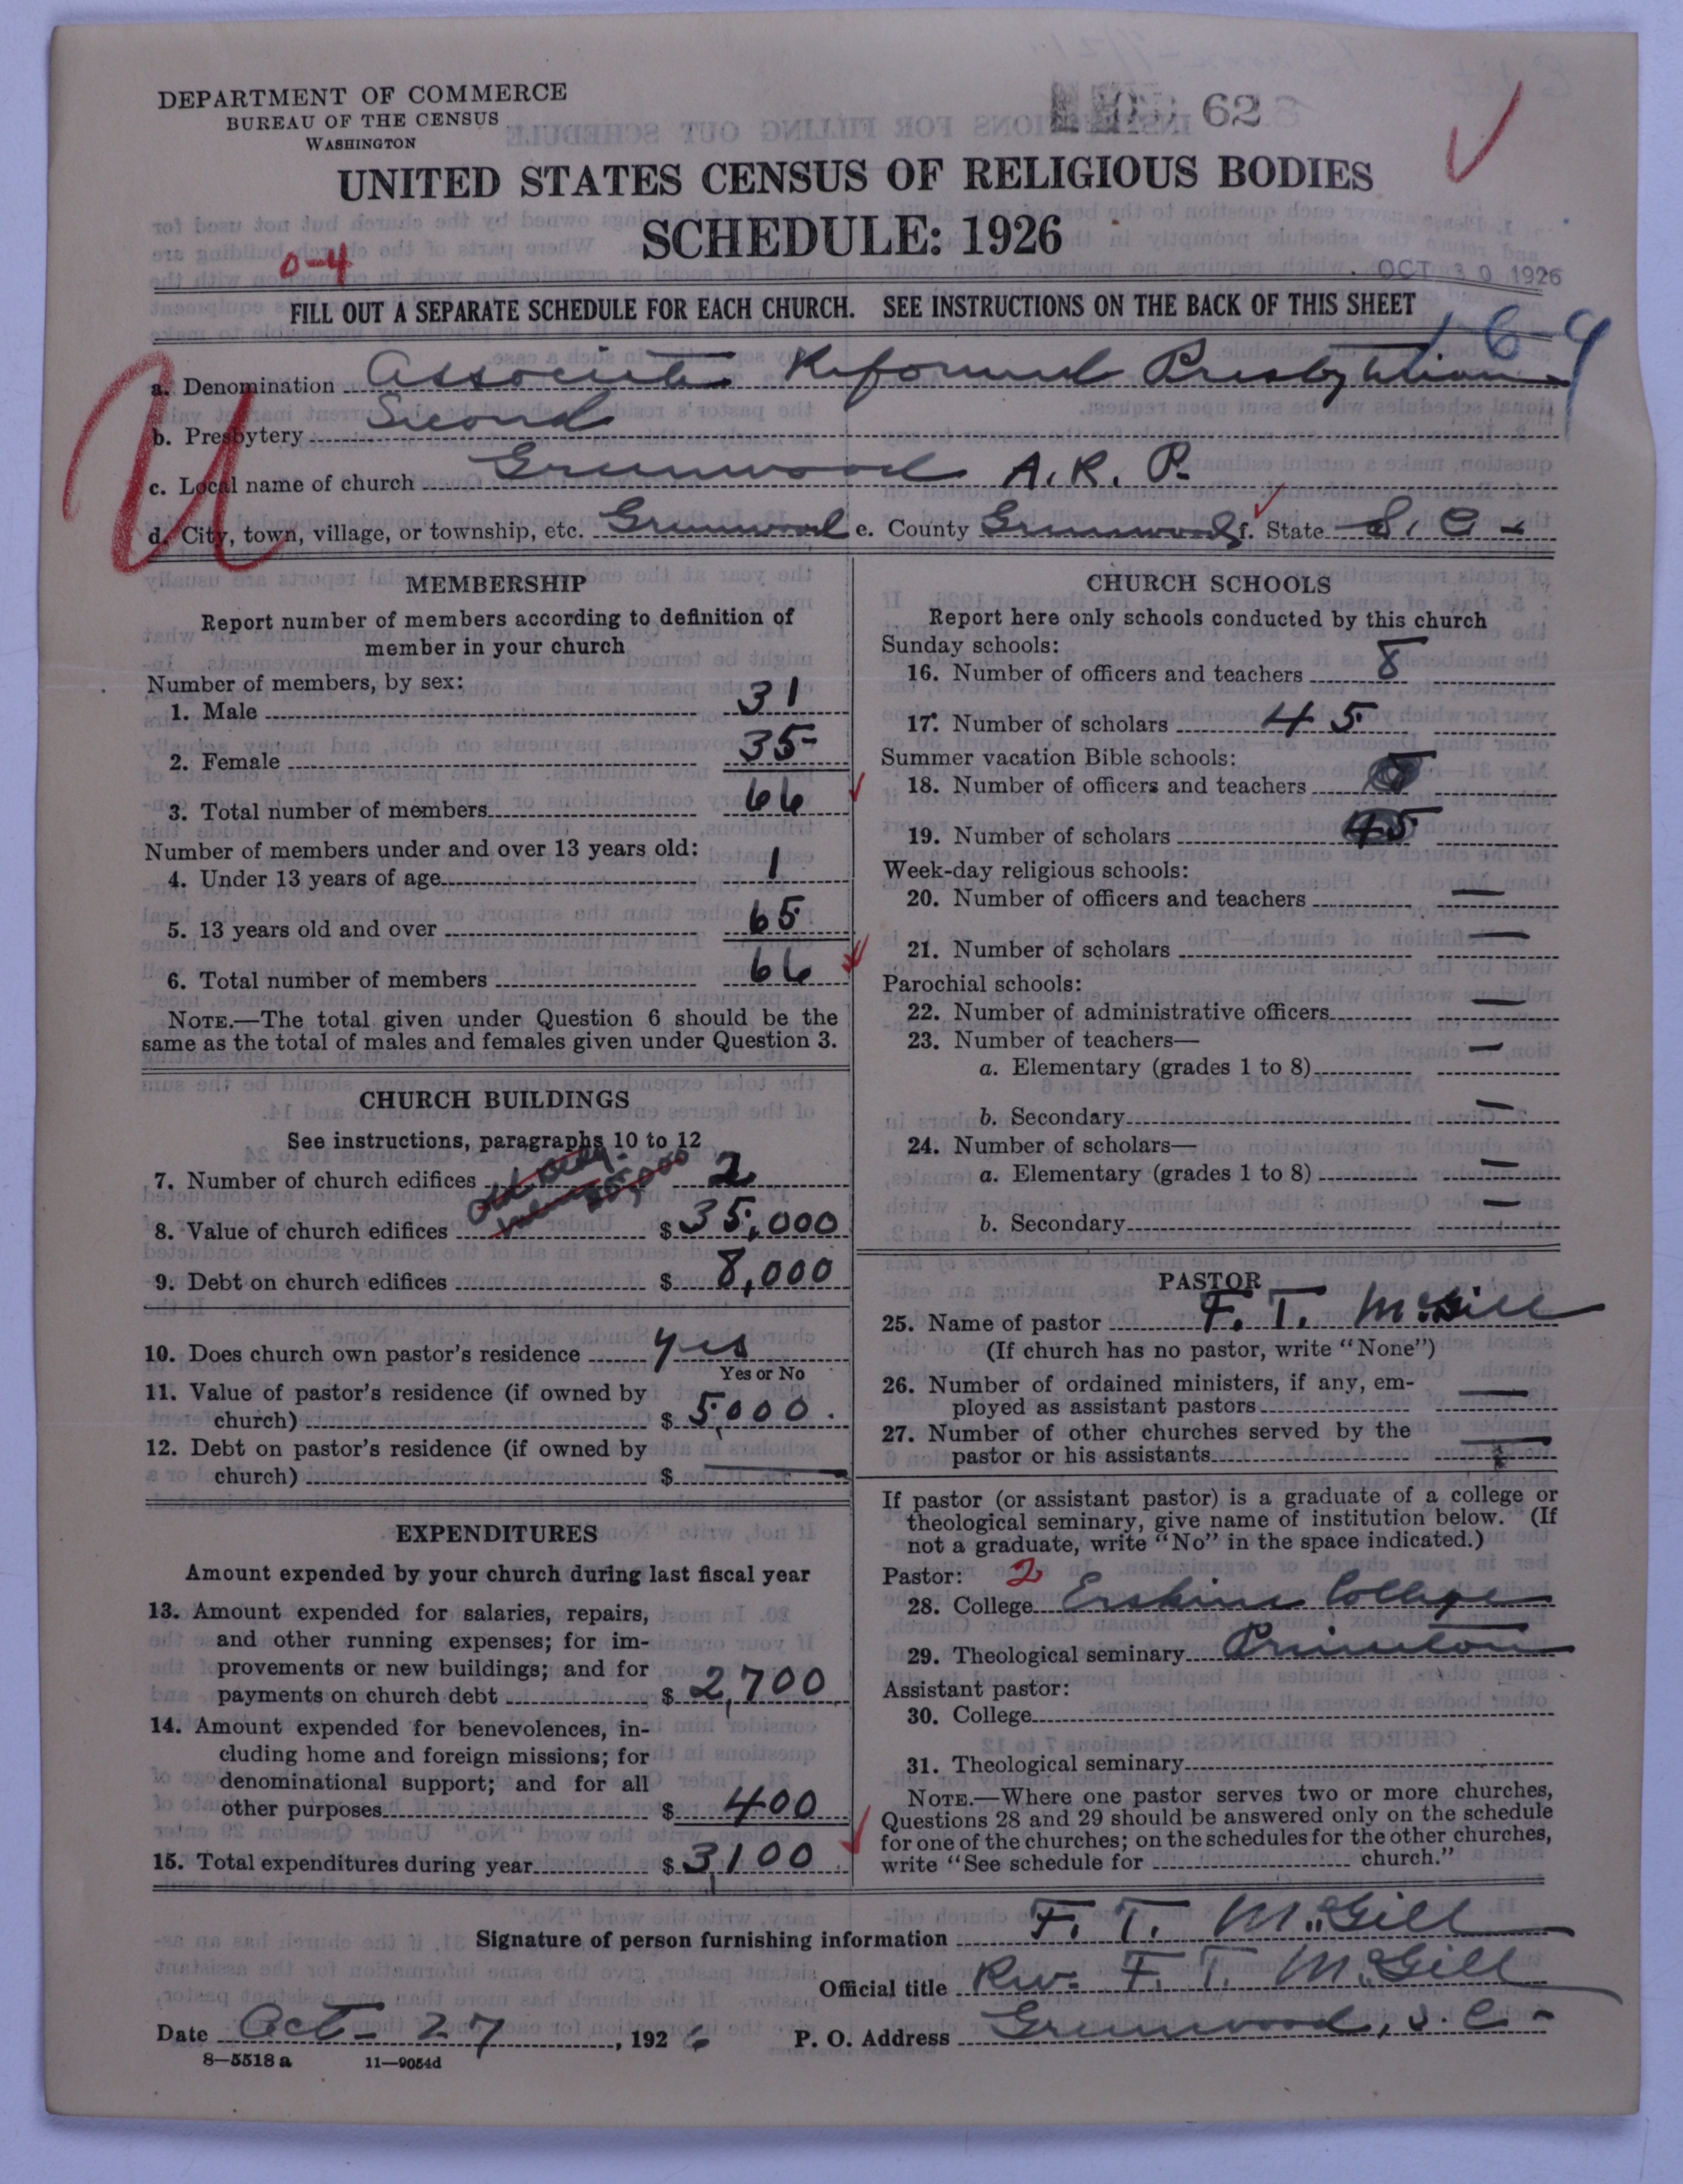 DEPARTMENT OF COMMERCE
BUREAU OF THE CENSUS
WASHINGTON
62
UNITED STATES CENSUS OF RELIGIOUS BODIES
SCHEDULE: 1926
0-4
OCT 30 1926
FILL OUT A SEPARATE SCHEDULE FOR EACH CHURCH. SEE INSTRUCTIONS ON THE BACK OF THIS SHEET
16-9
U
a. Denomination Associate Reformed Presbyterian
b. Presbytery Second
c. Local name of church Greenwood A. R. P.
d. City, town, village, or township, etc. Greenwood e. County Greenwood f. State S. C.
MEMBERSHIP
Report number of members according to definition of
member in your church
Number of members, by sex:
1. Male 31
2. Female 35
3. Total number of members 66
Number of members under and over 13 years old:
4. Under 13 years of age 1
5. 13 years old and over 65
6. Total number of members 66
NOTE.—The total given under Question 6 should be the
same as the total of males and females given under Question 3.
CHURCH BUILDINGS
See instructions, paragraphs 10 to 12
7. Number of church edifices 2
8. Value of church edifices $ 35,000
9. Debt on church edifices $ 8,000
10. Does church own pastor's residence yes
Yes or No
11. Value of pastor's residence (if owned by
church) $ 5,000.
12. Debt on pastor's residence (if owned by
church) $ —
EXPENDITURES
Amount expended by your church during last fiscal year
13. Amount expended for salaries, repairs,
and other running expenses; for im-
provements or new buildings; and for
payments on church debt $ 2,700
14. Amount expended for benevolences, in-
cluding home and foreign missions; for
denominational support; and for all
other purposes $ 400
15. Total expenditures during year $ 3,100
CHURCH SCHOOLS
Report here only schools conducted by this church
Sunday schools:
16. Number of officers and teachers 8
17. Number of scholars 45
Summer vacation Bible schools:
18. Number of officers and teachers
19. Number of scholars 45
Week-day religious schools:
20. Number of officers and teachers —
21. Number of scholars —
Parochial schools:
22. Number of administrative officers —
23. Number of teachers—
a. Elementary (grades 1 to 8) —
b. Secondary —
24. Number of scholars—
a. Elementary (grades 1 to 8) —
b. Secondary —
PASTOR
25. Name of pastor F. T. McGill
(If church has no pastor, write "None")
26. Number of ordained ministers, if any, em-
ployed as assistant pastors —
27. Number of other churches served by the
pastor or his assistants —
If pastor (or assistant pastor) is a graduate of a college or
theological seminary, give name of institution below. (If
not a graduate, write "No" in the space indicated.)
Pastor: 2
28. College Erskine College
29. Theological seminary Princeton
Assistant pastor:
30. College
31. Theological seminary
NOTE.—Where one pastor serves two or more churches,
Questions 28 and 29 should be answered only on the schedule
for one of the churches; on the schedules for the other churches,
write "See schedule for church."
Signature of person furnishing information F. T. McGill
Official title Rev. F. T. McGill
Date Oct- 27, 1926 P. O. Address Greenwood, S. C.
8—5518 a 11—9054d